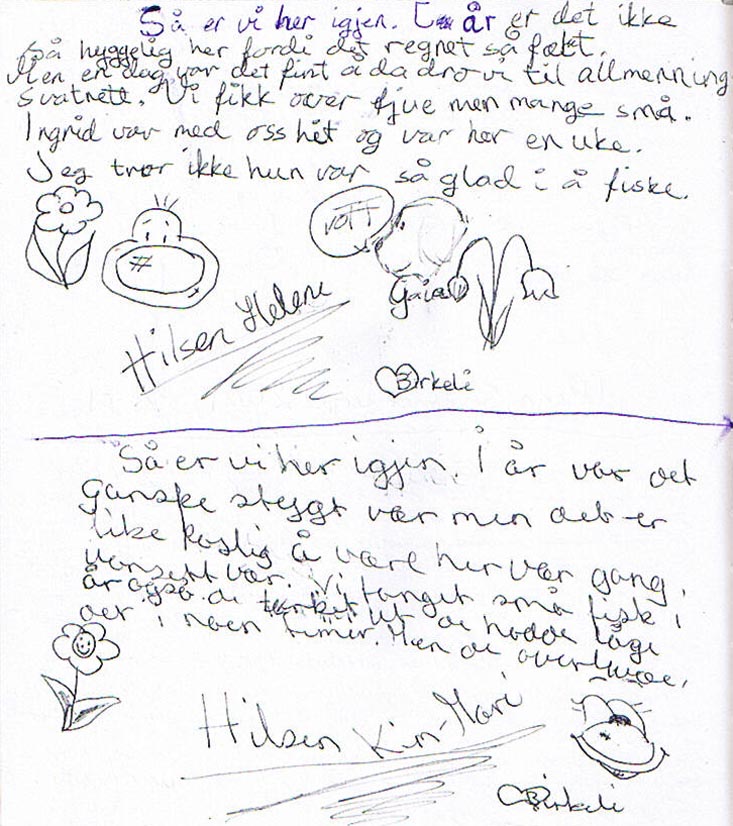 Så er vi her igjen. I år er det ikke
så hyggelig her fordi det regnet så fælt.
Men en dag var det fint å da dro vi til allmenning
svatnett. Vi fikk over tjue men mange små.
Ingrid var med oss hit og var her en uke.
Jeg tror ikke hun var så glad i å fiske.
VOFF
Gaia
Hilsen Helene
Birkeli
Så er vi her igjen. I år var det
ganske stygt vær men det er
like koslig å være her vær gang,
uansett vær. Vi fanget små fisk i
år også. de tørket ut de hadde lige
der i noen timer. Men de overlevde.
Hilsen Kin-Mari
Birkeli